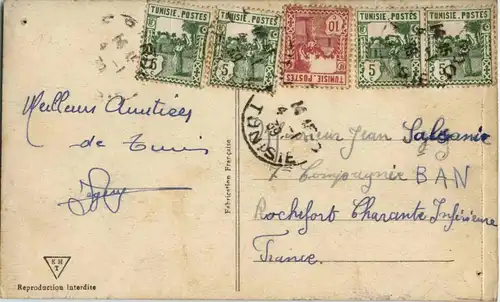 TUNISIE. POSTES
5
TUNISIE. POSTES
5
TUNISIE. POSTES
10
TUNISIE. POSTES
5
TUNISIE. POSTES
5
TUNISIE
Meilleures Amitiées
de Tunis
Monsieur Jean
7 Compagnie BAN
Rochefort Charante Inférieure
France.
Fabrication Française
EH
T
Reproduction interdite